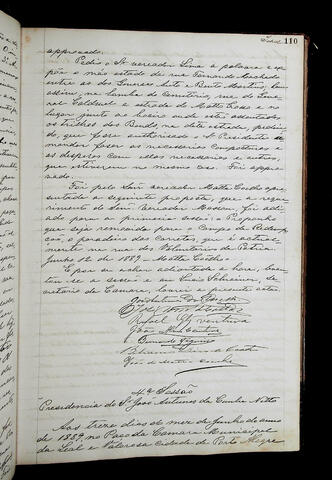 110
approvado.
Pedio o Sr. vereador Lima a palavra e ex-
pôz o máo estado da rua Fernando Machado
entre as dos General Auto e Bento Martins, bem
assim, na lomba do Cemiterio, rua do Gene-
ral Caldwel e estrada de Matto Grosso e no
lugar junto ao boeiro onde estão assentados
os trilhos dos Bonds, na dita estrada, pedin-
do, que fosse authorisado o Sr. Presidente a
mandar fazer os necessarios composturas e
as despezas com elles necessarias e outros,
que estiverem no mesmo caso. Foi appro-
vado.
Foi pelo Snr. vereador Motta Coelho apre-
sentada a seguinte proposta, que a reque-
rimento do Snr. Vereador foi adi-
ado para a primeira sessão: = Proponho
que seja removida para o Campo da Redemp-
ção, o paradeiro das carretas, que é actual-
mente na rua dos Voluntarios da Patria.
Junho 12 de 1889 = Motta Coelho =
E por se achar adiantada a hora, levan-
tou-se a sessão e eu Lucio Schreiner, Se-
cretario da Camara, lavrei a presente acta.
4ª Sessão
Presidencia do Sr. José Antunes da Cunha Netto
Aos treze dias do mez de Junho do anno
de 1889, no Paço da Camara Municipal
da Leal e Valorosa cidade de Porto Alegre